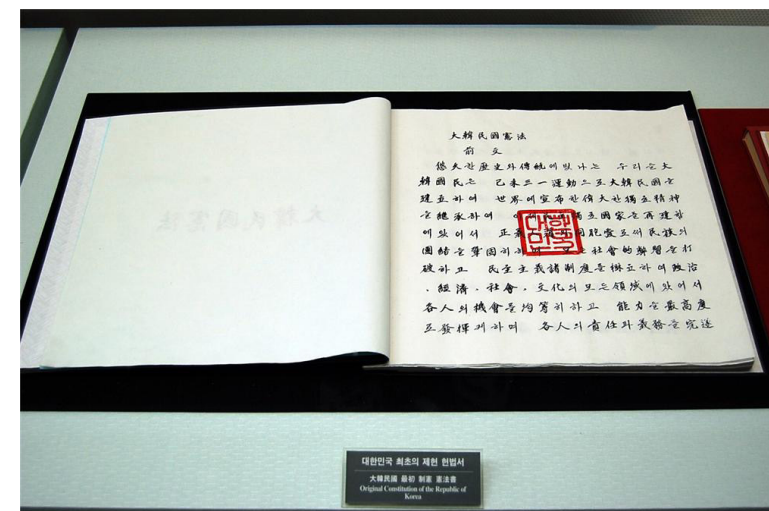 大韓民國憲法
前 文
悠久한 歷史와 傳統에 빛나는 우리들 大
韓國民은 己未三一運動으로 大韓民國을
建立하여 世界에 宣布한 偉大한 獨立精神
을 繼承하여 獨立國家를 再建함
에 있어서 正義人道와 同胞愛로써 民族의
團結을 鞏固히하며 모든 社會的 弊習을 打
破하고 民主主義諸制度를 樹立하여 政治
, 經濟, 社會, 文化의 모든 領域에 있어서
各人의 機會를 均等히 하고 能力을 最高度
로 發揮케 하며 各人의 責任과 義務를 完遂
대한민국
대한민국 최초의 제헌 헌법서
大韓民國 最初 制憲 憲法書
Original Constitution of the Republic of
Korea